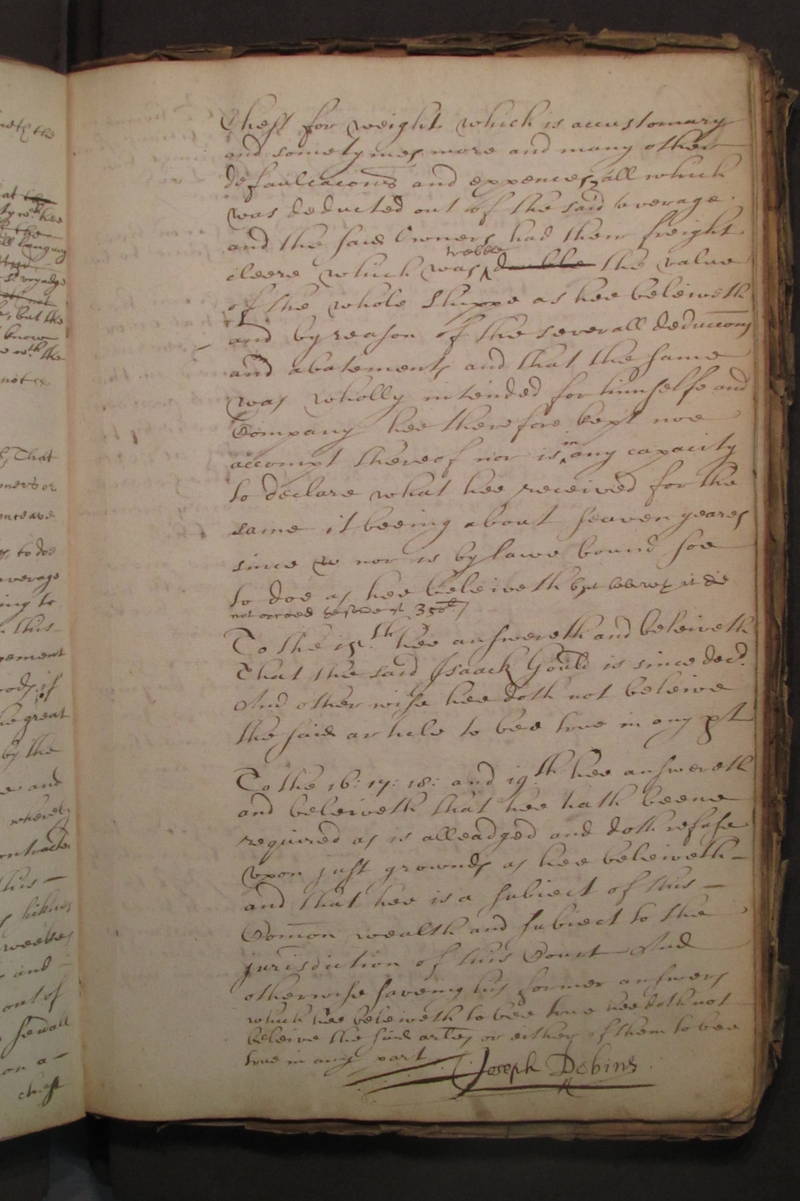 Chest for weight which is accustomary
and sometymes more and many other
defaulcacons and expences, all which
was deducted out of the said average.
and the said Owners had their freight
cleere which was treble double the value
of the whole Shippe as hee beleiveth
And by reason of the severall deduccons
and abatements and that the same
was wholly intended for himselfe and
Company hee therefore kept noe
accompt thereof nor is in any capacity
to declare what hee received for the
same it beeing about seaven yeares
since nor is by lawe bound soe
to doe as hee beleiveth but beleeves it did
not exceed 350
To the 15th hee answereth and beleiveth
That the said Isaack Gould is since decd.
And otherwise hee doth not beleive
the said article to bee true in any pt
To the 16: 17: 18: and 19th hee answereth
and beleiveth that hee hath beene
required as is alleadged and doth refuse
upon just grownds as hee beleiveth
and that hee is a subiect of this
Comon wealth and subiect to the
jurisdiction of this Court And
otherwise saveing his former answers
which hee beleiveth to bee true hee doth not
beleive the said artles or either of them to bee
true in any part
Joseph Dobins
not
at the
the
but the
knowe
the
That
to doe
average
ing to
this
great
by the
and
whereby
this
and
out of
on a
chest